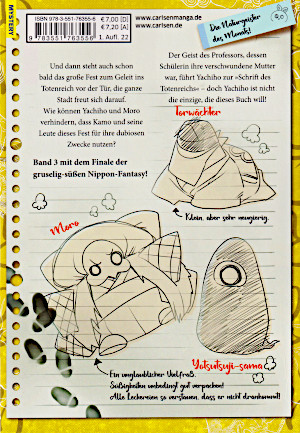 MYSTERY
ISBN 978-3-551-76355-6
9 783551 763556
€ 7,00 [D]
€ 7,20 [A]
1. Aufl. 22
www.carlsenmanga.de
www.carlsen.de
Die Naturgeister
des Manga!
Und dann steht auch schon
bald das große Fest zum Geleit ins
Totenreich vor der Tür, die ganze
Stadt freut sich darauf.
Wie können Yachiho und Moro
verhindern, dass Kamo und seine
Leute dieses Fest für ihre dubiosen
Zwecke nutzen?
Band 3 mit dem Finale der
gruselig-süßen Nippon-Fantasy!
Der Geist des Professors, dessen
Schülerin ihre verschwundene Mutter
war, führt Yachiho zur »Schrift des
Totenreichs« – doch Yachiho ist nicht
die einzige, die dieses Buch will!
Torwächter
Klein, aber sehr neugierig.
Moro
Yatsutsuji-sama
Ein unglaublicher Vielfraß.
Süßigkeiten unbedingt gut verpacken!
Alle Leckereien so verstauen, dass er nicht drankommt!